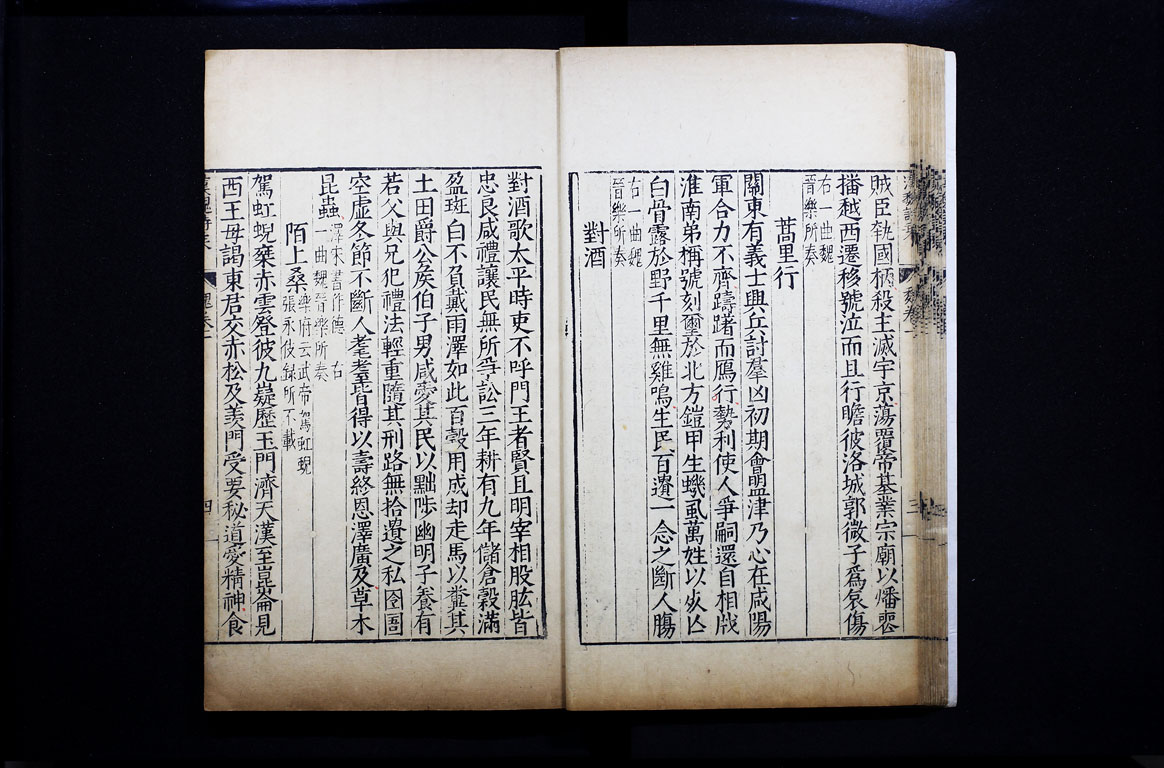 賊臣執國柄殺主滅宇京蕩覆帝基業宗廟以燔喪
播越西遷移號泣而且行瞻彼洛城郭微子爲哀傷
右一曲魏
晉樂所奏
蒿里行
關東有義士興兵討羣凶初期會盟津乃心在咸陽
軍合力不齊躊躇而鴈行勢利使人爭嗣還自相戕
淮南弟稱號刻璽於北方鎧甲生蟣虱萬姓以死亾
白骨露於野千里無雞鳴生民百遺一念之斷人膓
右一曲魏
晉樂所奏
對酒
對酒歌太平時吏不呼門王者賢且明宰相股肱皆
忠良咸禮讓民無所爭訟三年耕有九年儲倉穀滿
盈斑白不負戴雨澤如此百穀用成却走馬以糞其
土田爵公矦伯子男咸愛其民以黜陟幽明子養有
若父與兄犯禮法輕重隨其刑路無拾遺之私囹圄
空虛冬節不斷人耄耋皆得以壽終恩澤廣及草木
昆蟲
澤宋書作德 右
一曲魏晉樂所奏
陌上桑
樂府云武帝駕虹蜺
張永伎録所不載
駕虹蜺椉赤雲登彼九嶷歷玉門濟天漢至崑崙見
西王母謁東君交赤松及羡門受要秘道愛精神食
魏卷一
四